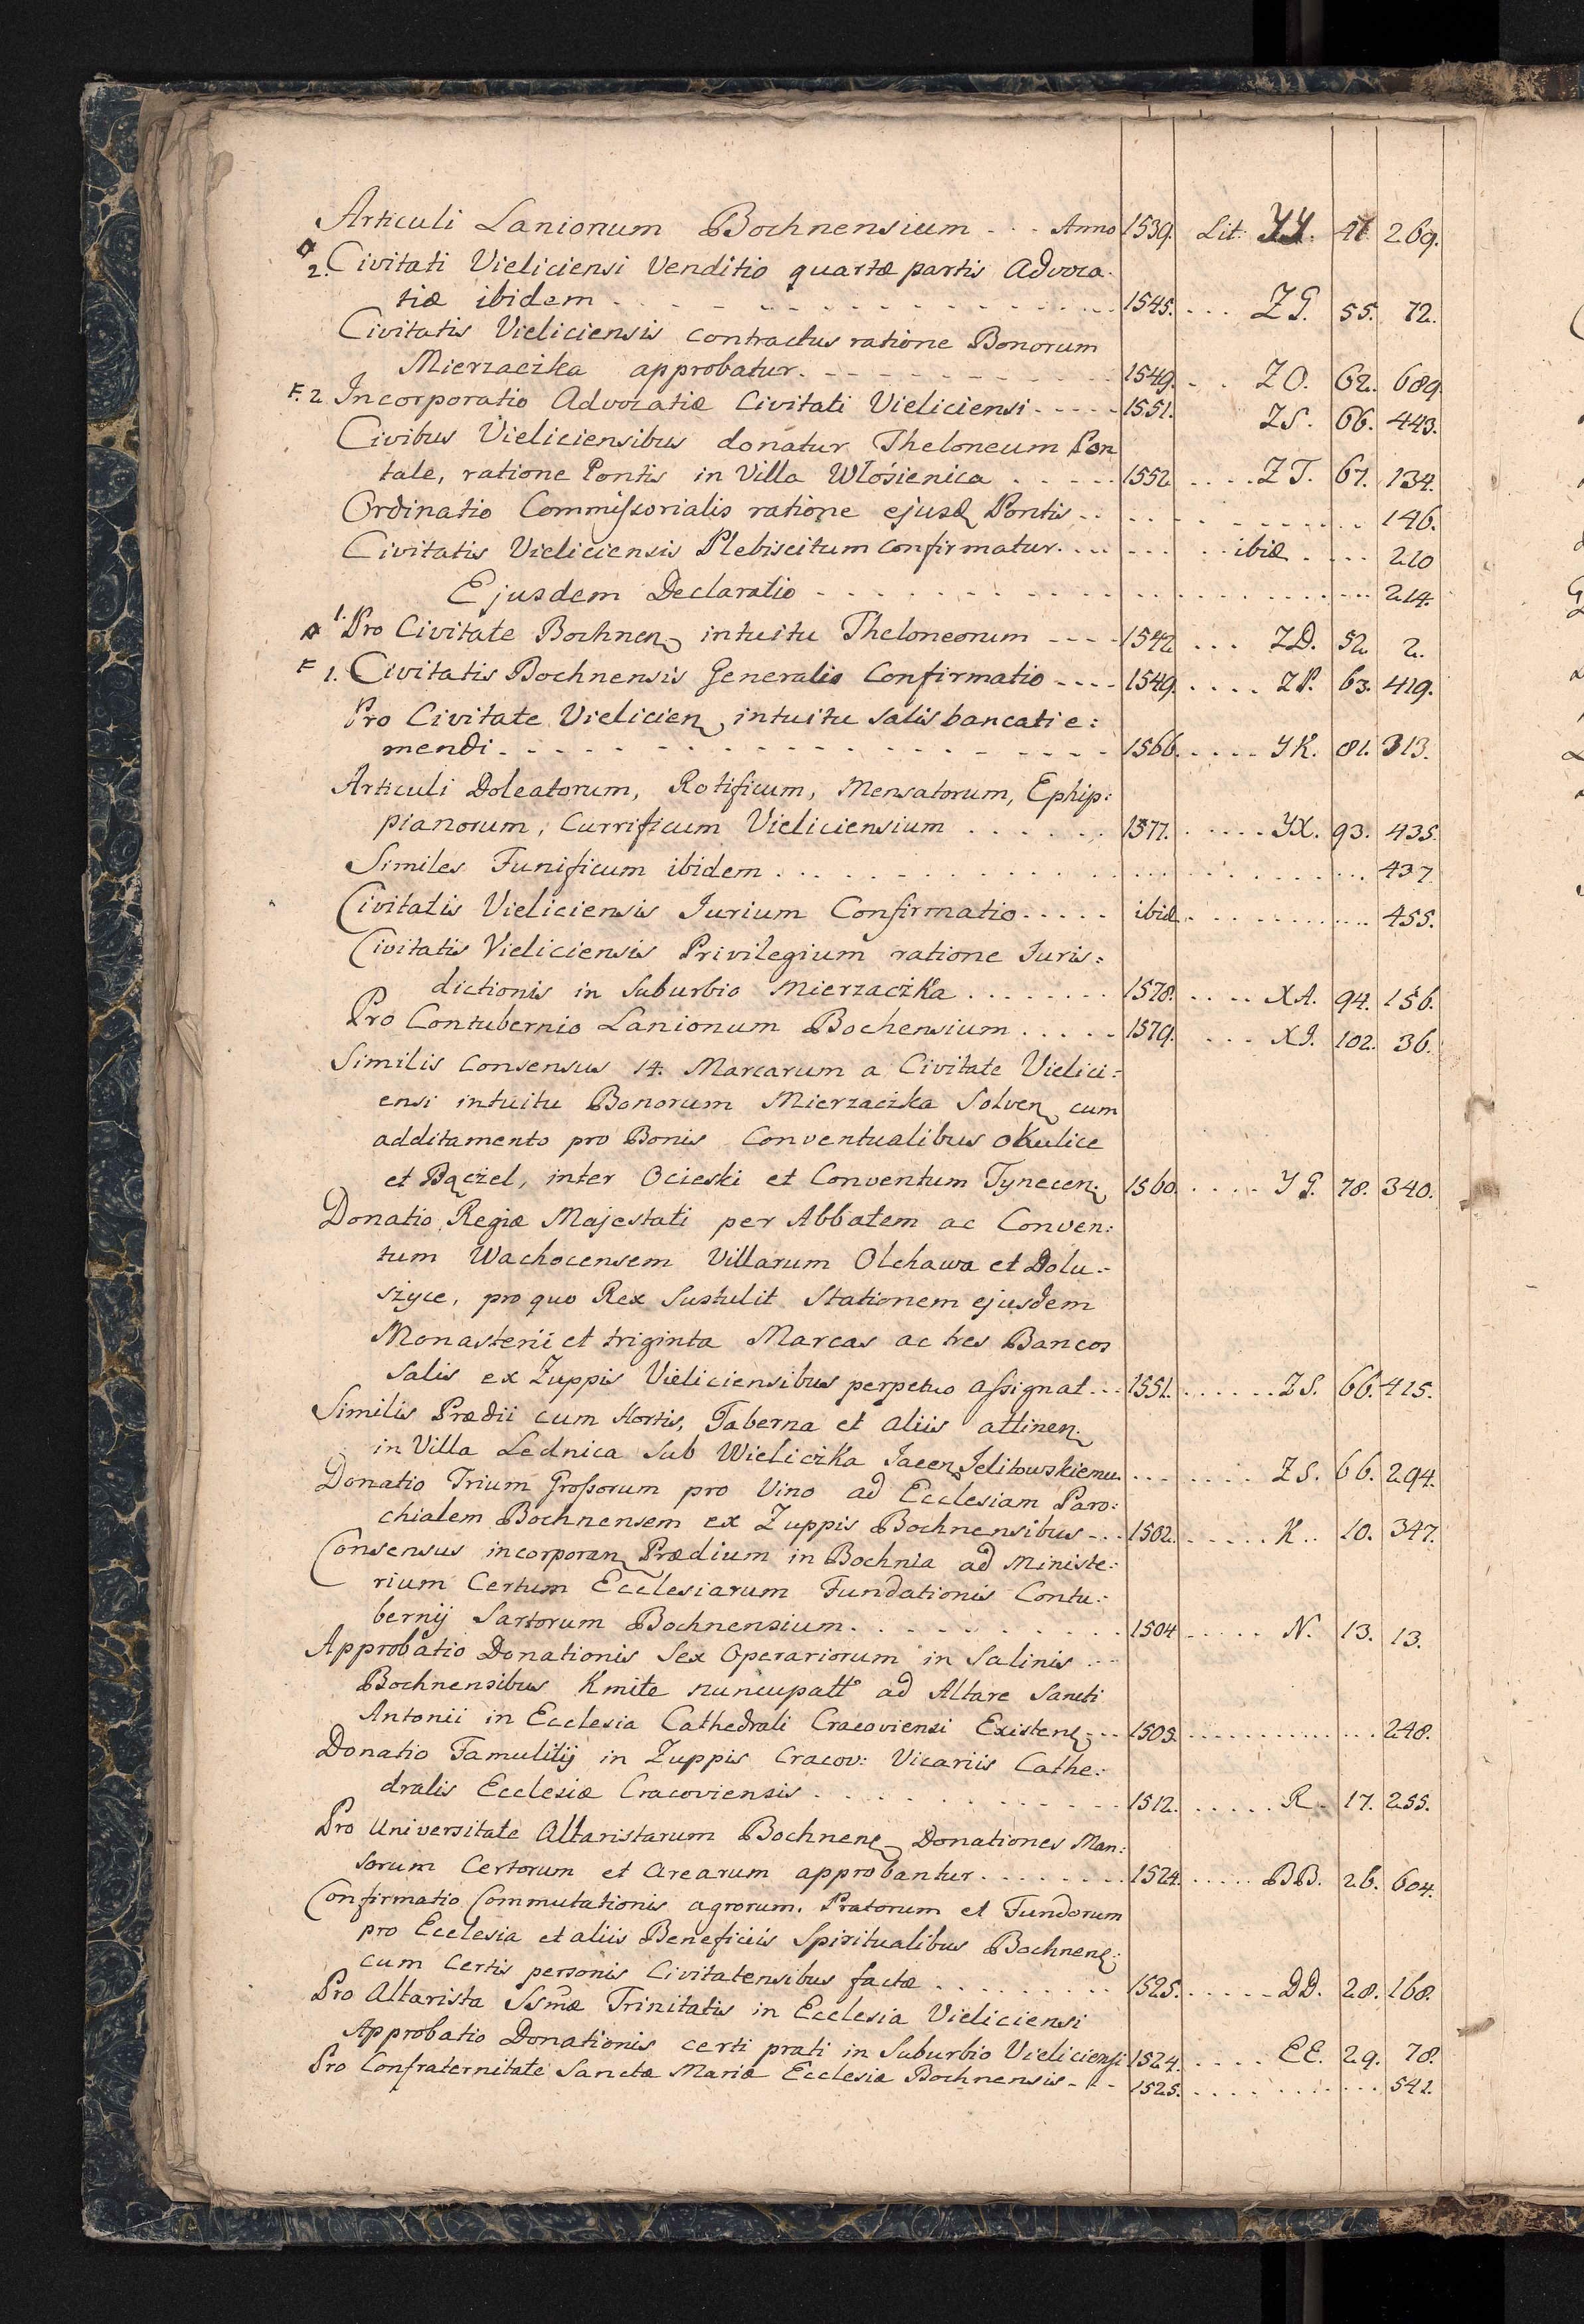 Articuli Lanionum Bochnensium - - - Anno 1539. Lit: YY. 47 269.
2. Civitati Vieliciensi Venditio quartæ partis Advoca-
tiæ ibidem - - - 1545. ... ZG. 55. 72.
Civitatis Vieliciensis contractus ratione Bonorum
Mierzaczka approbatur. - - - 1549. - - ZO. 62. 689.
F. 2. Incorporatio Advocatiæ Civitati Vieliciensi - - - - - 1551. ZS. 66. 443.
Civibus Vieliciensibus donatur Theloneum Pon
tale, ratione Pontis in Villa Włosienica . . . . . 1552 . . . . ZT. 67. 134.
Ordinatio Commissorialis ratione ejusd Pontis . . . . . 146.
Civitatis Vieliciensis Plebiscitum confirmatur. . . . . . . ibid . . . . 210
Ejusdem Declaratio . . . . . 214.
1. Pro Civitate Bochnen intuitu Theloneorum - - - - 1542 . . . ZD. 52. 2.
F 1. Civitatis Bochnensis Generalis Confirmatio - - - - 1549. . . . . ZP. 63. 419.
Pro Civitate Vielicien intuitu Salis bancati e:
mendi. - - - 1566. . . . . YK. 81. 313.
Articuli Doleatorum, Rotificum, Mensatorum, Ephip:
pianorum, Currificum Vieliciensium . . . . . . 1577. . . . . . YX. 93. 435.
Similes Funificum ibidem . . . . . 437.
Civitatis Vieliciensis Jurium Confirmatio . . . . . ibid . . . . . 455.
Civitatis Vieliciensis Privilegium ratione Juris:
dictionis in Suburbio Mierzaczka . . . . . . . . 1578. . . . . XA. 94. 156.
Pro Contubernio Lanionum Bochensium . . . . . 1579. . . . XJ. 102. 36.
Similis consensus 14. Marcarum a Civitate Vielici:
ensi intuitu Bonorum Mierzaczka Solven cum
additamento pro Bonis Conventualibus Okulice
et Bączel, inter Ocieski et Conventum Tynecen: 1560. . . . . YG. 78. 340.
Donatio Regiæ Majestati per Abbatem ac Conven:
tum Wachocensem Villarum Olchawa et Dolu:
szyce, pro quo Rex Sustulit Stationem ejusdem
Monasterii et triginta Marcas ac tres Bancos
Salis ex Zuppis Vieliciensibus perpetuo assignat . . . 1551. . . . . . . ZS. 66. 415.
Similis Prædii cum Hortis, Taberna et aliis attinen:
in Villa Lednica Sub Wieliczka Jacen Jelitowskiemu. . . . . . . . ZS. 66. 294.
Donatio Trium Grossorum pro Vino ad Ecclesiam Paro:
chialem Bochnensem ex Zuppis Bochnensibus - . . 1502. . . . . . K . . 10. 347.
Consensus incorporan Prædium in Bochnia ad Ministe:
rium Certum Ecclesiarum Fundationis Contu:
bernij Sartorum Bochnensium. . . . . . 1504 . . . . . N. 13. 13.
Approbatio Donationis Sex Operariorum in Salinis . . -
Bochnensibus Kmite nuncupatt° ad Altare Sancti
Antonii in Ecclesia Cathedrali Cracoviensi Existen - - - 1505. . . . . . 248.
Donatio Famulitij in Zuppis Cracov: Vicariis Cathe:
dralis Ecclesiæ Cracoviensis . . . . . 1512. . . . . . R . 17. 255.
Pro Universitate Altaristarum Bochnen Donationes Man:
sorum Certorum et Arearum approbantur . . . . . . . 1524. . . . . . BB. 26. 604.
Confirmatio Commutationis agrorum, Pratorum et Fundorum
pro Ecclesia et aliis Beneficiis Spiritualibus Bochnen:
cum Certis personis Civitatensibus facta . . . . . . . . 1525. . . . . . DD. 28. 168.
Pro Altarista Ssmæ Trinitatis in Ecclesia Vieliciensi
Approbatio Donationis certi prati in Suburbio Vieliciensi 1524. . . . . EE. 29. 78.
Pro Confraternitate Sanctæ Mariæ Ecclesiæ Bochnensis - . - 1525. . . . . . 541.